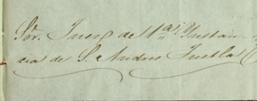 Sor. Juez de 1a. Ynstan
cia de S. Andres Tuxtla